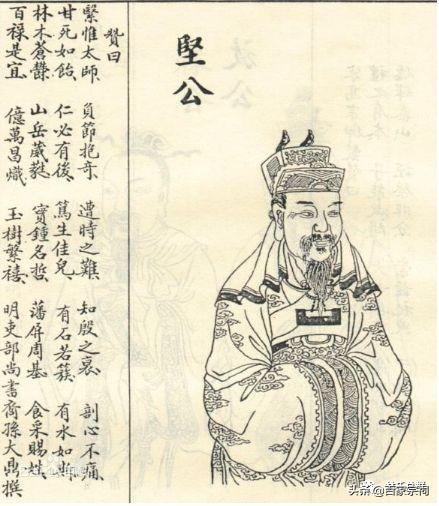 堅公
贊曰
繄惟太師、負節抱奇、遭時之難、知殷之哀、剖心不痛、
甘死如飴、仁必有後、篤生佳兒、有石若簇、有水如斯、
林木蒼鬱、山岳葳蕤、寶鍾名哲、藩屏周基、食采賜姓、
百祿是宜、億萬昌熾、玉樹繁禧、明吏部尚書裔孫大鼎撰
头条 @百家宗祠